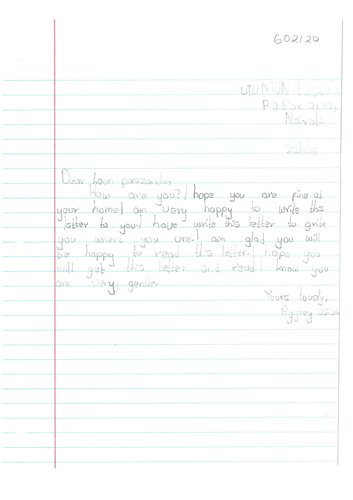 G02120
P.O Box
Nairobi
Dear
How are you? I hope you are fine at
your home I am Very happy to write this
latter to you I have write this letter to
you where you are I am glad you will
be happy to read this letter I hope you
will get this letter and read I know you
are Very
Yours lovely,
Aggrey